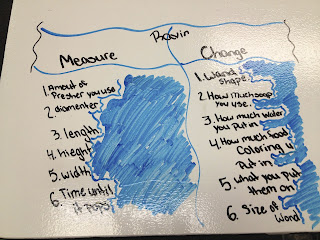 Measure
Change
1. Amout of
Presher you use
2. diamenter
3. length
4. hieght
5. width
6. Time until
it pops
1. Wand
shape.
2. How much soap
you use.
3. How much water
you Put in
4. How much food
Coloring u
Put in
5. what you put
them on
6. Size of
Wand